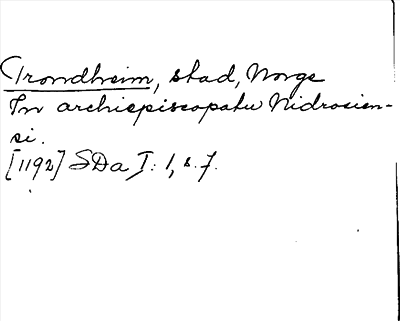 Trondheim, stad, Norge
In archiepiscopatu Nidrosien-
si.
[1192] SDa I: 1, s. 7.